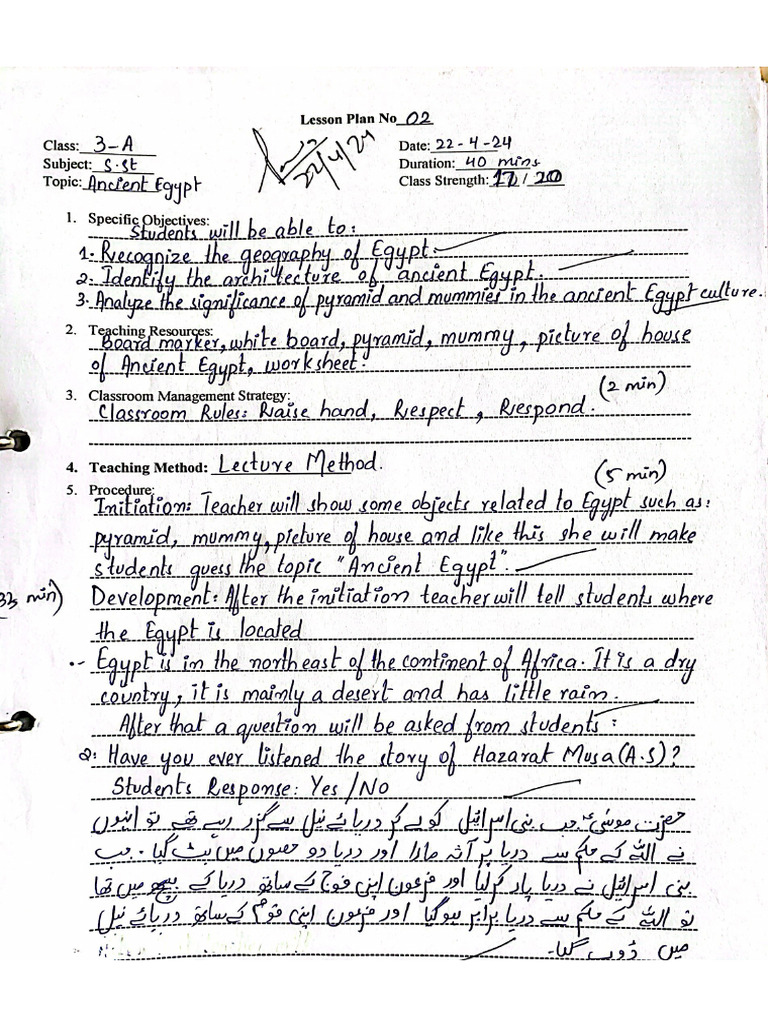 Lesson Plan No 02
Class: 3-A
Date: 22-4-24
Subject: S.St
Duration: 40 mins
Topic: Ancient Egypt
Class Strength: 17/20
22/4/24
1. Specific Objectives:
Students will be able to:
1. Recognize the geography of Egypt.
2. Identify the architecture of ancient Egypt.
3. Analyze the significance of pyramid and mummies in the ancient Egypt culture.
2. Teaching Resources:
Board marker, white board, pyramid, mummy, picture of house
of Ancient Egypt, worksheet.
3. Classroom Management Strategy: (2 min)
Classroom Rules: Raise hand, Respect, Respond.
4. Teaching Method: Lecture Method.
(5 min)
5. Procedure:
Initiation: Teacher will show some objects related to Egypt such as:
pyramid, mummy, picture of house and like this she will make
students guess the topic "Ancient Egypt".
(33 min) Development: After the initiation teacher will tell students where
the Egypt is located
.- Egypt is in the northeast of the continent of Africa. It is a dry
country, it is mainly a desert and has little rain.
After that a question will be asked from students:
Q: Have you ever listened the story of Hazarat Musa (A.S)?
Students Response: Yes/No
حضرت موسیٰؑ جب بنی اسرائیل کو لے کر دریائے نیل سے گزر رہے تھے تو انہوں
نے اللہ کے حکم سے دریا پر مارا اور دریا دو حصوں میں بٹ گیا۔ جب
بنی اسرائیل نے دریا پار کرلیا اور فرعون اپنی فوج کے ساتھ دریا کے بیچ میں تھا
تو اللہ کے حکم سے دریا برابر ہوگیا اور فرعون اپنی قوم کے ساتھ دریائے نیل
میں ڈوب گیا۔